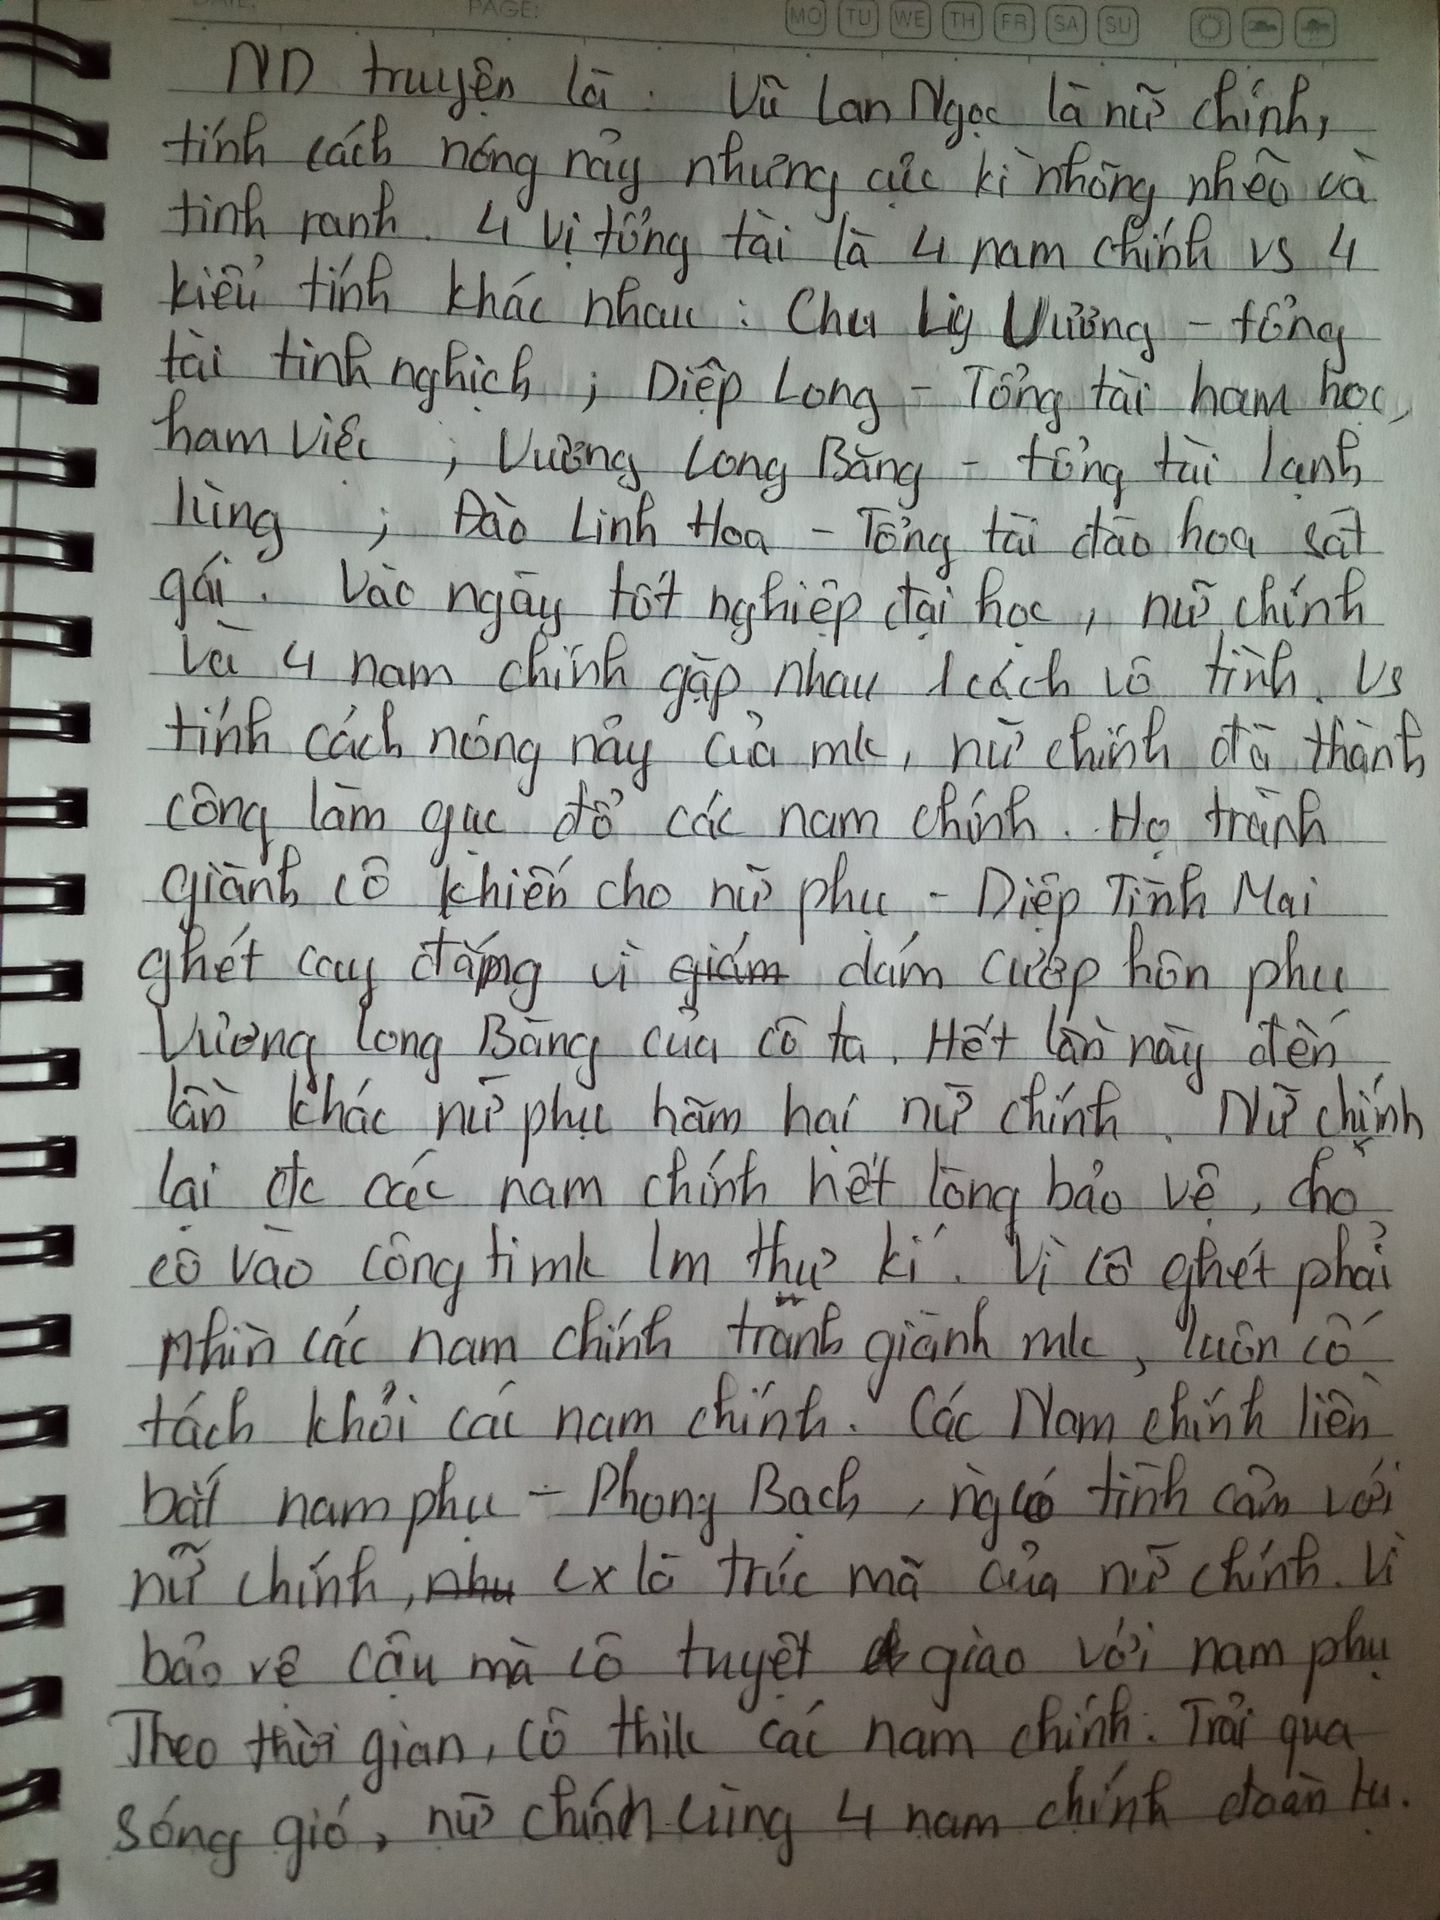 PAGE:
MO TU WE TH FR SA SU
ND truyện là: Vũ Lan Ngọc là nữ chính,
tính cách nóng nảy nhưng cực kì nhõng nhẽo và
tinh ranh. 4 vị tổng tài là 4 nam chính vs 4
kiểu tính khác nhau: Chu Vương - tổng
tài tinh nghịch; Diệp Long - Tổng tài ham học,
ham việc; Vương Long Băng - tổng tài lạnh
lùng; Đào Linh Hoa - Tổng tài đào hoa sát
gái. Vào ngày tốt nghiệp đại học, nữ chính
và 4 nam chính gặp nhau 1 cách vô tình. Vs
tính cách nóng nảy của mk, nữ chính đã thành
công làm gục đổ các nam chính. Họ tranh
giành cô khiến cho nữ phụ - Diệp Tình Mai
ghét cay đắng vì giám dám cướp hôn phu
Vương Long Băng của cô ta. Hết lần này đến
lần khác nữ phụ hãm hại nữ chính. Nữ chính
lại đc các nam chính hết lòng bảo vệ, cho
cô vào công ti mk lm thư kí. Vì cô ghét phải
nhìn các nam chính tranh giành mk, luôn cố
tách khỏi các nam chính. Các Nam chính liền
bắt nam phụ - Phong Bạch, ng có tình cảm với
nữ chính, như cx là trúc mã của nữ chính. Vì
bảo vệ cậu mà cô tuyệt giao với nam phụ
Theo thời gian, cô thik các nam chính. Trải qua
sóng gió, nữ chính cùng 4 nam chính đoàn tụ.